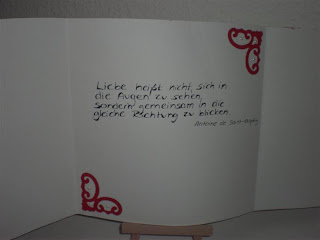 Liebe heißt nicht, sich in
die Augen zu sehen,
sondern gemeinsam in die
gleiche Richtung zu blicken.
Antoine de Saint-Exupéry